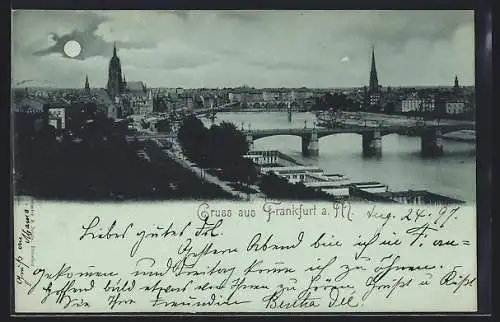 Gruss aus Frankfurt a. M.
Aug 24. 97.
Liebes gutes Frl.
Gestern Abend bin ich in F. an-
gekommen und Freitag komme ich zu Ihnen.
Hoffend bald etwas von Ihnen zu hören Grüßt u Küßt
Sie Ihre Freundin Bertha
Gruß von Mama